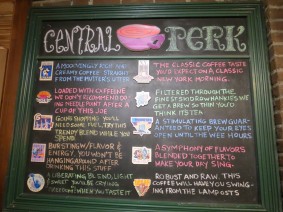 CENTRAL PERK
A MOORINGLY RICH AND
CREAMY COFFEE STRAIGHT
FROM THE MUTTER'S UTTER
LOADED WITH CAFFEINE
WE DON'T RECOMMEND DO-
ING NEEDLE POINT AFTER A
CUP OF THIS JOE
GOING SHOPPING? YOU'LL
NEED SOME FUEL. TRY THIS
TRENDY BLEND WHILE YOU
SPEND
BURSTING W/FLAVOR &
ENERGY, YOU WON'T BE
HANGING AROUND AFTER
DRINKING THIS STUFF
A LIBERATING BLEND, LIGHT
SWEET YOU'LL BE CRYING
FREEDOM WHEN YOU TASTE IT
THE CLASSIC COFFEE TASTE
YOU'D EXPECT ON A CLASSIC
NEW YORK MORNING
FILTERED THROUGH THE
FINEST HANKIES WE
GET A BREW SO THIN YOU'D
THINK ITS TEA
A STIMULATING BREW GUAR-
ANTEED TO KEEP YOUR EYES
OPEN UNTIL THE WEE HOURS
A SYMPHONY OF FLAVORS
BLENDED TOGETHER TO
MAKE YOUR DAY SING
ROBUST AND RAW. THIS
COFFEE WILL HAVE YOU SWING-
ING FROM THE LAMPOSTS